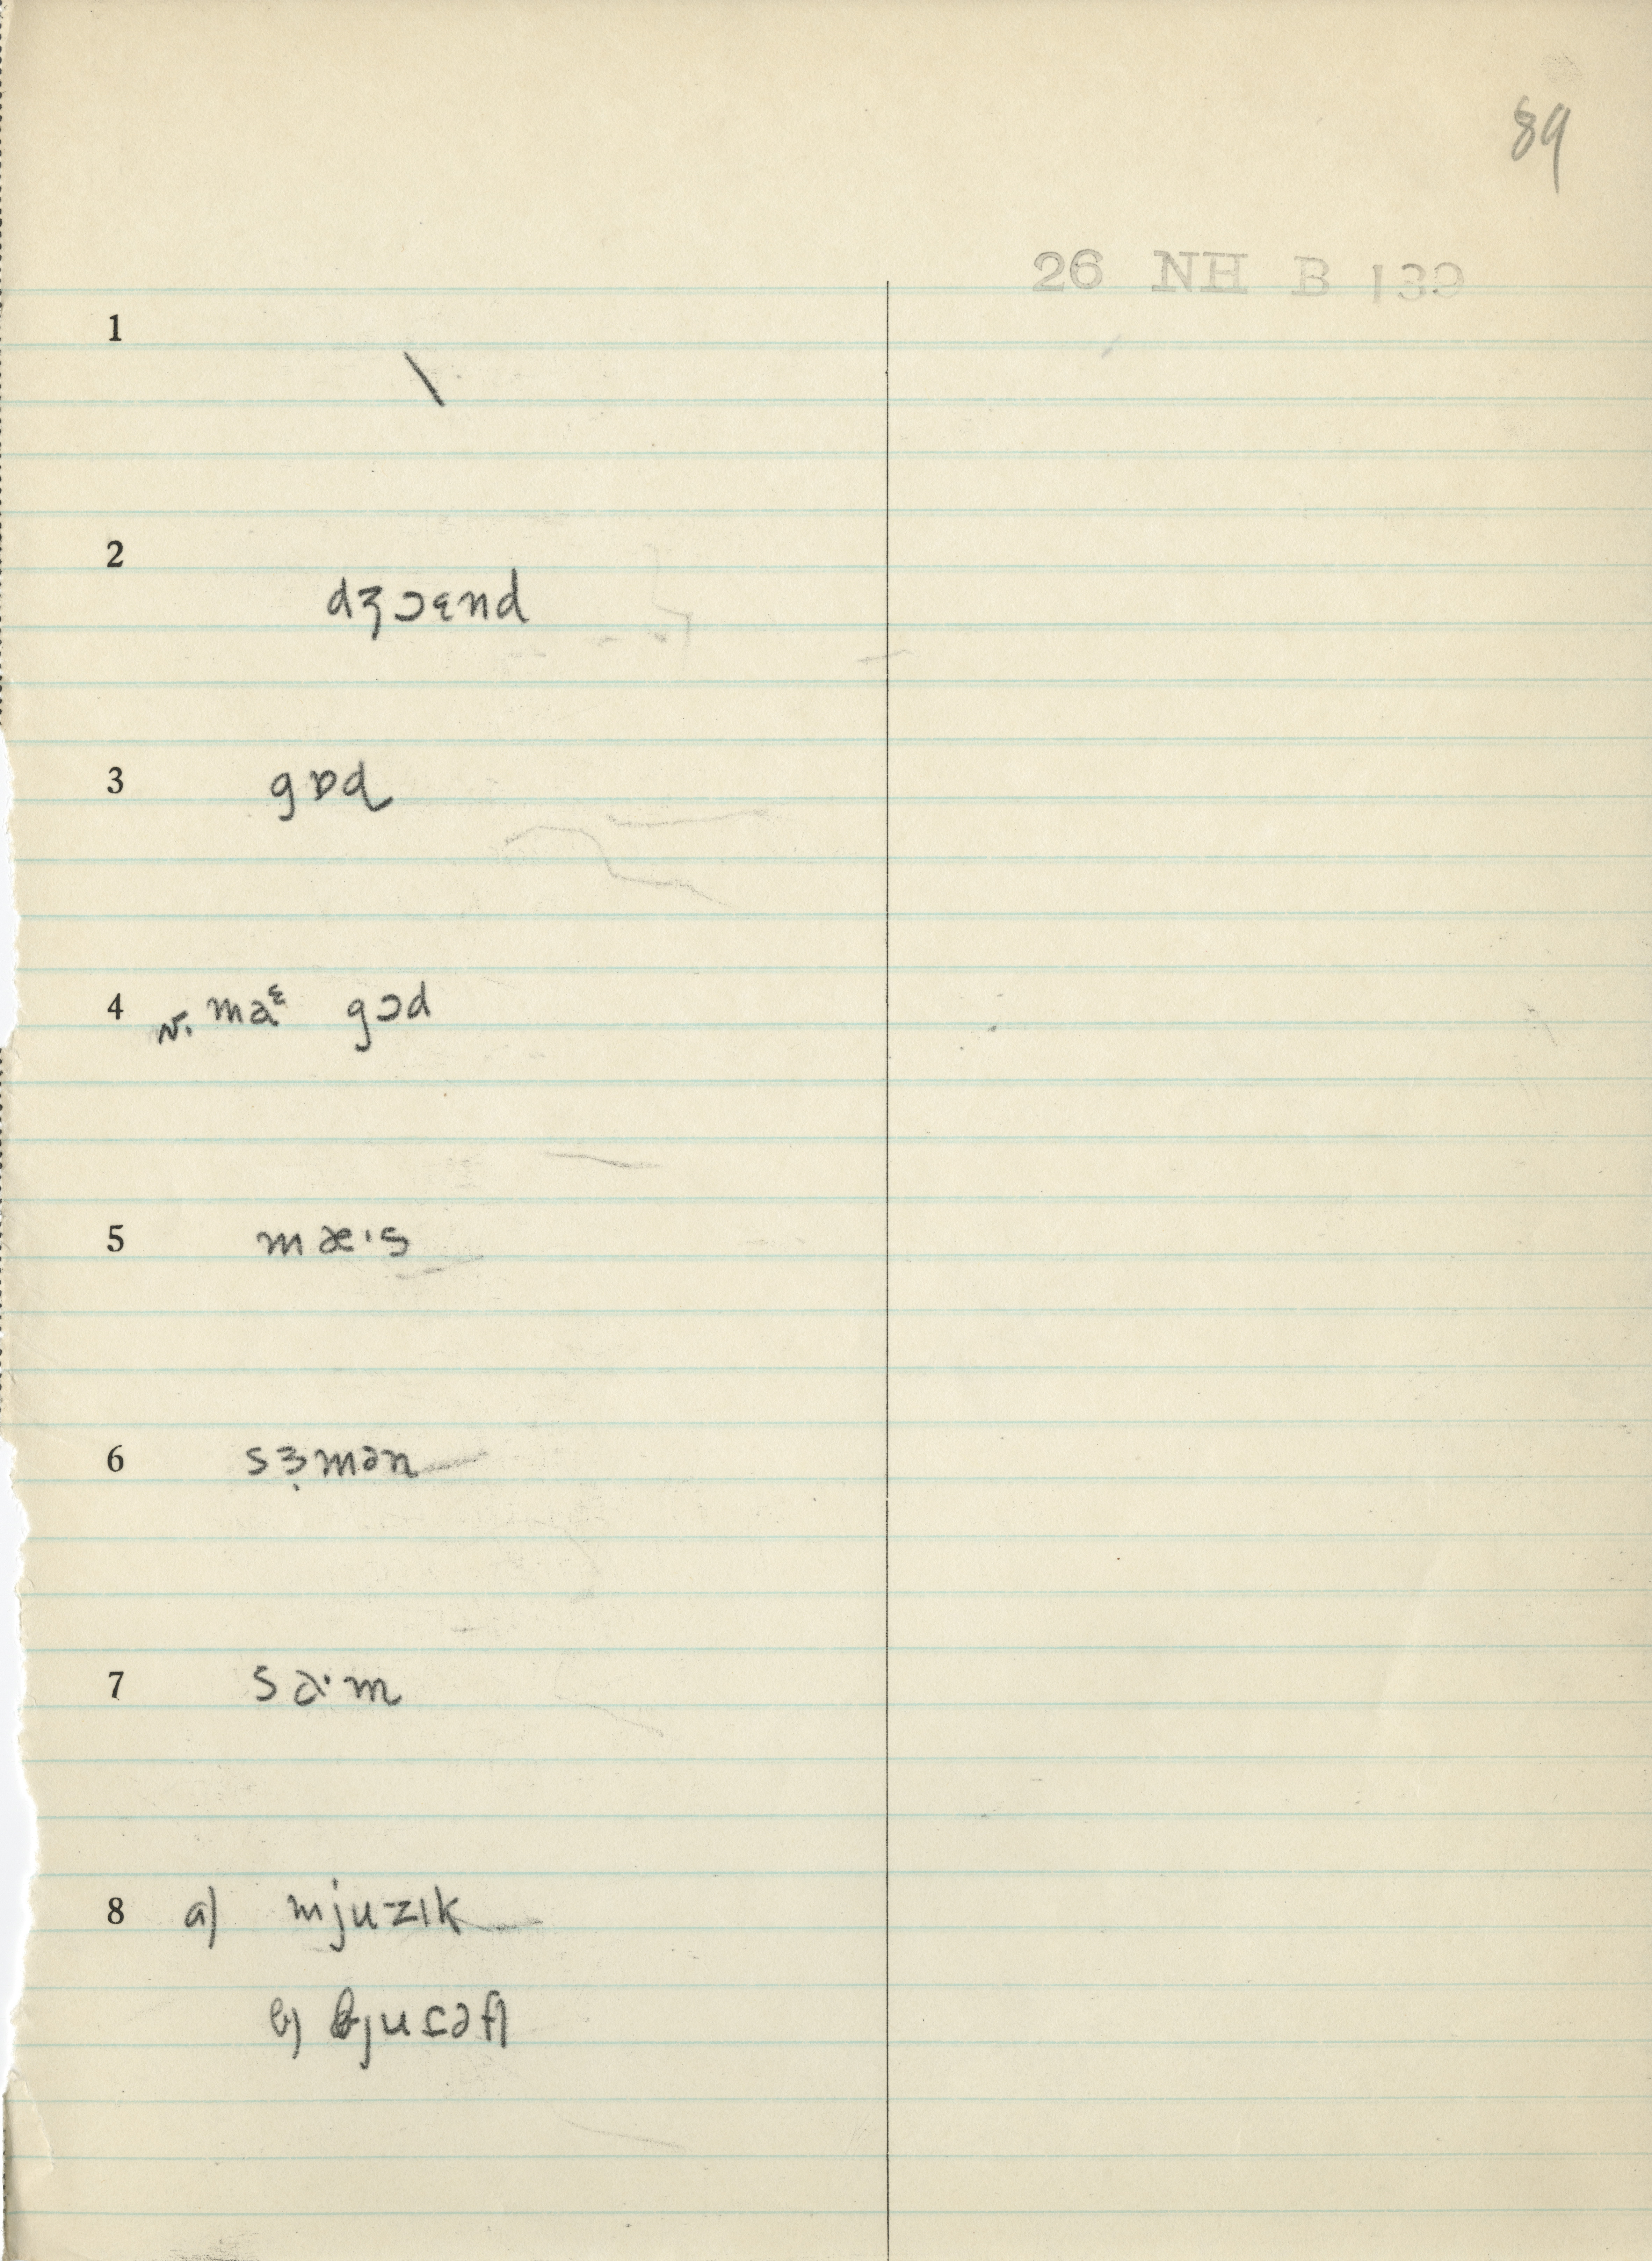 89
26 NH B 139
1 \
2 dʒɔɛnd
3 gɒd
4 v. maᵋ gɔd
5 mæ·s
6 sɜ̣mən
7 sa·m
8 a) mjuzɪk
b)